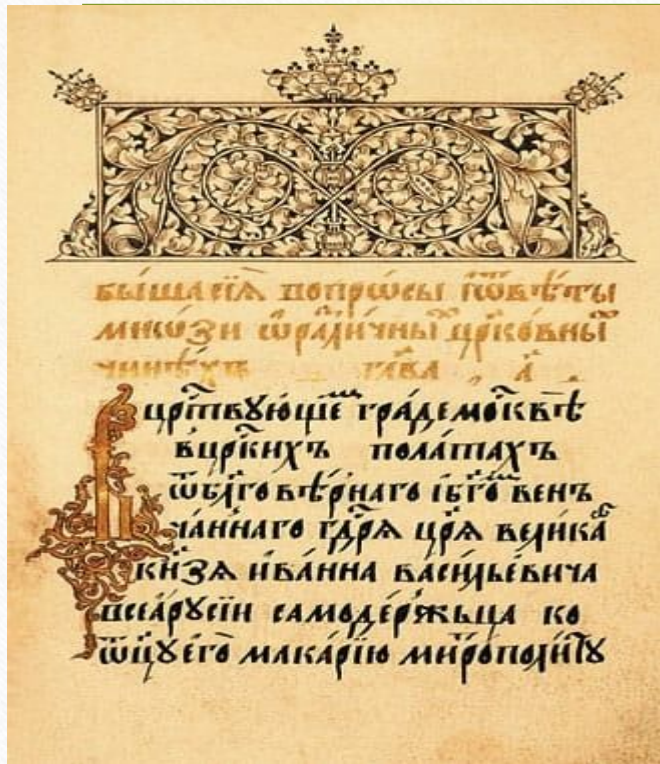 бы́ша сїѧ̀ вопрѡ́сы иѿвѣ́ты
мнѡ́зи ѡра́ꙁличны црко́вны
чинѣ́хъ глава̀ , а҃ .
Вцрⷭ҇твꙋющеⷨ гра́де москвѣ̀
вцрⷭ҇кихъ пола́тахъ
ѿблгⷪ҇вѣ́рнаго ибг҃ⷪ҇мъ вен
ча́ннаго гдⷭ҇рѧ црѧ̀ велика
кн҃ꙁѧ ива́нна васи́льевича
всеѧ̀рꙋсїи самоде́ржьца ко
ѿцꙋ̀ его̀ мака́рїю митрополи́тꙋ